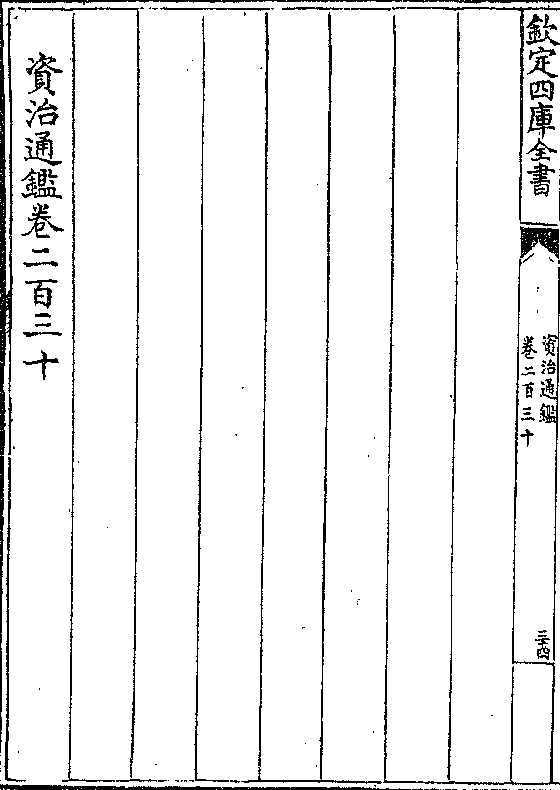 欽定四庫全書
資治通鑑
卷二百三十
三十四
資治通鑑卷二百三十